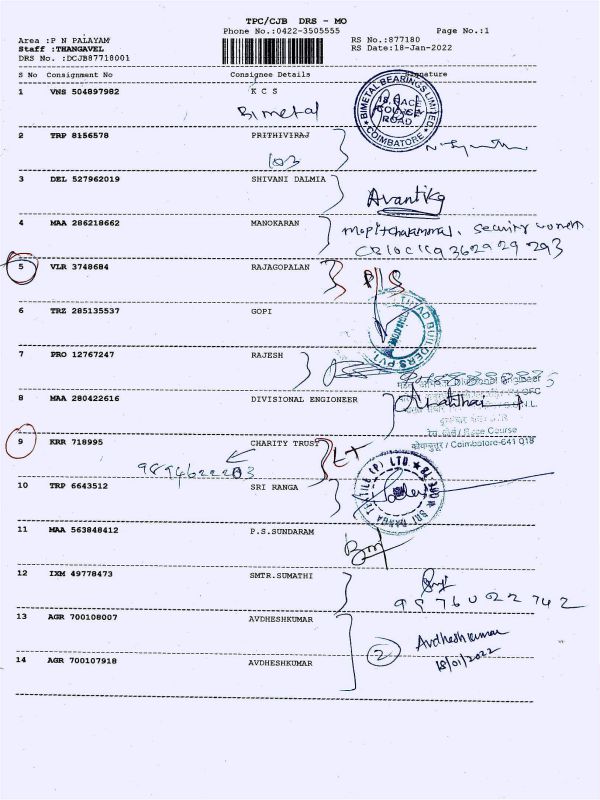 TPC/CJB DRS - MO
Phone No.:0422-3505555 Page No.:1
Area : P N PALAYAM RS No.:877180
Staff : THANGAVEL RS Date:18-Jan-2022
DRS No. :DCJB87718001
S No Consignment No Consignee Details Signature
1 VNS 504897982 K C S
Bimetal
BIMETAL BEARINGS LIMITED
18, RACE
COURSE
ROAD
COIMBATORE
2 TRP 8156578 PRITHIVIRAJ
103
3 DEL 527962019 SHIVANI DALMIA
Avantika
4 MAA 286218662 MANOKARAN
security women
5 VLR 3748684 RAJAGOPALAN
6 TRZ 285135537 GOPI
BUILDERS PVT.
7 PRO 12767247 RAJESH
Divisional Engineer
8 MAA 280422616 DIVISIONAL ENGIONEER
Race Course
कोयम्बुत्तूर / Coimbatore-641 018
9 KRR 718995 CHARITY TRUST
10 TRP 6643512 SRI RANGA
SRI RANGA TEXTILE (P) LTD.
11 MAA 563848412 P.S.SUNDARAM
12 IXM 49778473 SMTR.SUMATHI
9976022742
13 AGR 700108007 AVDHESHKUMAR
2 Avdheshkumar
18/01/2022
14 AGR 700107918 AVDHESHKUMAR